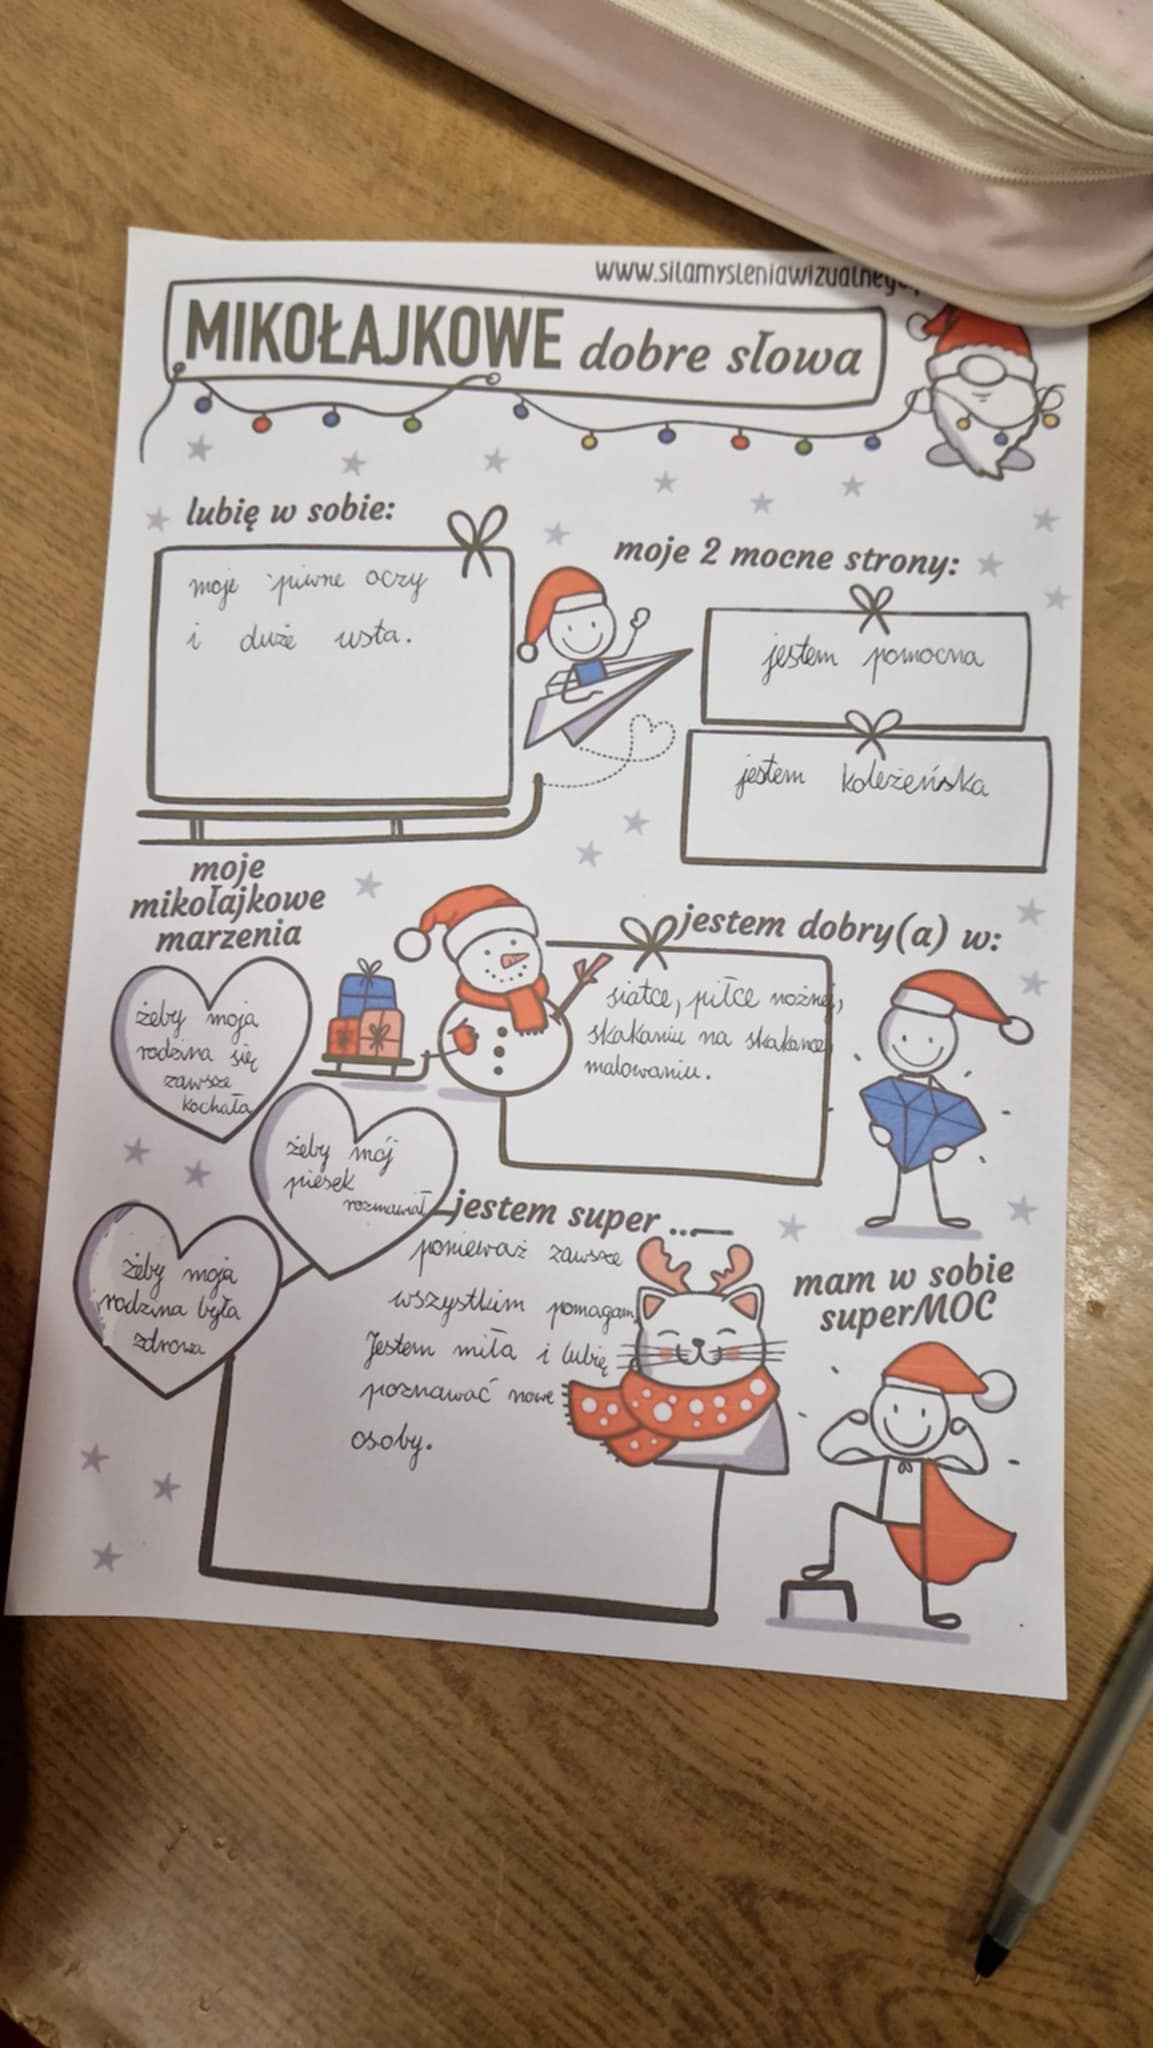 www.silamysleniawizualnego.
MIKOŁAJKOWE dobre słowa
lubię w sobie:
moje piwne oczy
i duże usta.
moje 2 mocne strony:
jestem pomocna
jestem koleżeńska
moje
mikołajkowe
marzenia
żeby moja
rodzina się
zawsze
kochała
żeby mój
piesek
rozmawiał
żeby moja
rodzina była
zdrowa
jestem dobry(a) w:
siatce, piłce nożnej,
skakaniu na skakance
malowaniu.
jestem super ...
ponieważ zawsze
wszystkim pomagam.
Jestem miła i lubię
poznawać nowe
osoby.
mam w sobie
superMOC